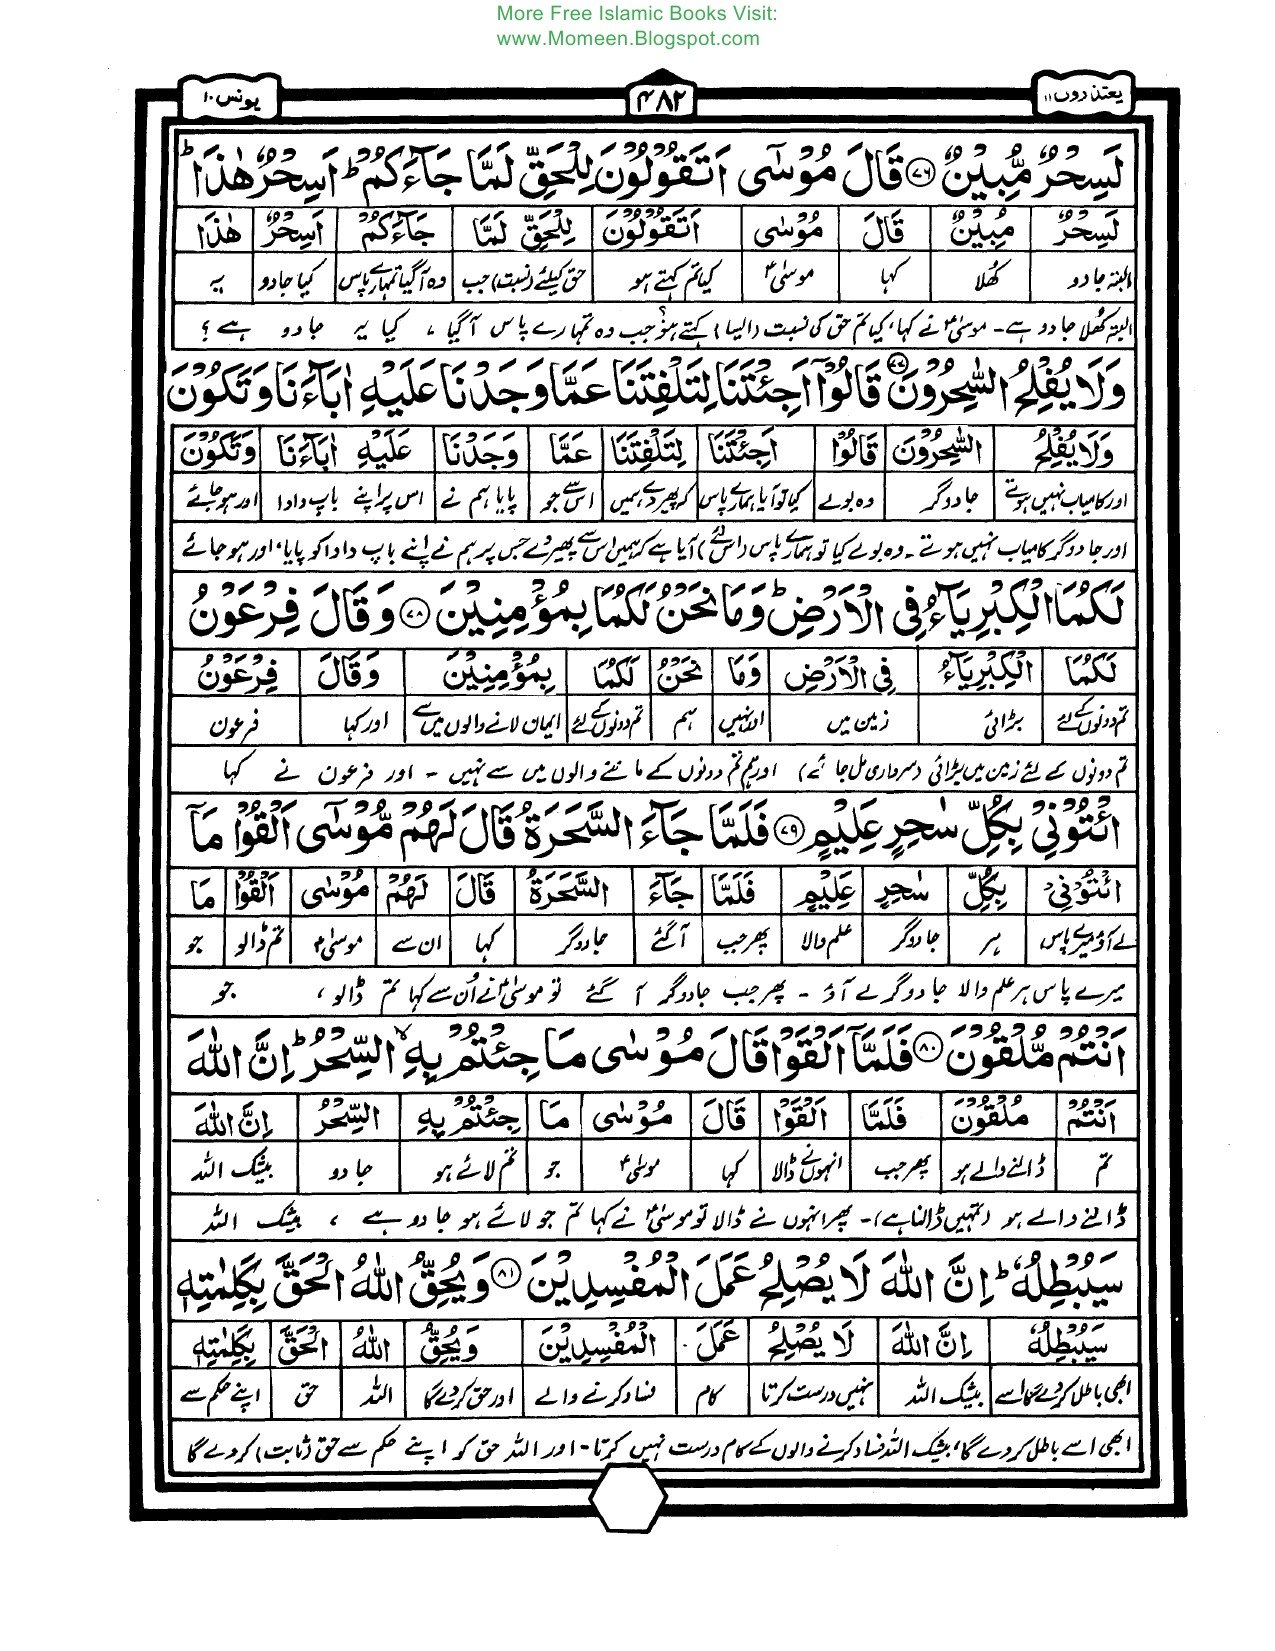 More Free Islamic Books Visit:
www.Momeen.Blogspot.com
یعتذرون ۱۱
۴۸۲
یونس ۱۰
لَسِحْرٌ مُّبِيْنٌ ﴿۷۶﴾ قَالَ مُوْسٰٓى اَتَقُوْلُوْنَ لِلْحَقِّ لَمَّا جَآءَكُمْ ؕ اَسِحْرٌ هٰذَا ؕ
لَسِحْرٌ مُبِيْنٌ قَالَ مُوْسٰٓى اَتَقُوْلُوْنَ لِلْحَقِّ لَمَّا جَآءَكُمْ اَسِحْرٌ هٰذَا
البتہ جادو کھلا کہا موسیٰؑ کیا تم کہتے ہو حق کیلئے (نسبت) جب وہ آگیا تمہارے پاس کیا جادو یہ
البتہ کھلا جادو ہے۔ موسیٰؑ نے کہا، کیا تم حق کی نسبت (ایسا) کہتے ہو؟ جب وہ تمہارے پاس آگیا ، کیا یہ جادو ہے ؟
وَلَا يُفْلِحُ السّٰحِرُوْنَ ﴿۷۷﴾ قَالُوْٓا اَجِئْتَنَا لِتَلْفِتَنَا عَمَّا وَجَدْنَا عَلَيْهِ اٰبَآءَنَا وَتَكُوْنَ
وَلَا يُفْلِحُ السّٰحِرُوْنَ قَالُوْٓا اَجِئْتَنَا لِتَلْفِتَنَا عَمَّا وَجَدْنَا عَلَيْهِ اٰبَآءَنَا وَتَكُوْنَ
اور کامیاب نہیں ہوتے جادوگر وہ بولے کیا تو آیا ہمارے پاس کہ پھیر دے ہمیں اس سے جو پایا ہم نے اس پر اپنے باپ دادا اور ہو جائے
اور جادوگر کامیاب نہیں ہوتے۔ وہ بولے کیا تو ہمارے پاس (اس لئے) آیا ہے کہ ہمیں اس سے پھیر دے جس پر ہم نے اپنے باپ دادا کو پایا، اور ہو جائے
لَكُمَا الْكِبْرِيَآءُ فِى الْاَرْضِ ؕ وَمَا نَحْنُ لَكُمَا بِمُؤْمِنِيْنَ ﴿۷۸﴾ وَقَالَ فِرْعَوْنُ
لَكُمَا الْكِبْرِيَآءُ فِى الْاَرْضِ وَمَا نَحْنُ لَكُمَا بِمُؤْمِنِيْنَ وَقَالَ فِرْعَوْنُ
تم دونوں کے لئے بڑائی زمین میں اور نہیں ہم تم دونوں کے لئے ایمان لانے والوں میں سے اور کہا فرعون
تم دونوں کے لئے زمین میں بڑائی (سرداری مل جائے) اور ہم تم دونوں کے ماننے والوں میں سے نہیں ۔ اور فرعون نے کہا
ائْتُوْنِىْ بِكُلِّ سٰحِرٍ عَلِيْمٍ ﴿۷۹﴾ فَلَمَّا جَآءَ السَّحَرَةُ قَالَ لَهُمْ مُّوْسٰٓى اَلْقُوْا مَآ
ائْتُوْنِىْ بِكُلِّ سٰحِرٍ عَلِيْمٍ فَلَمَّا جَآءَ السَّحَرَةُ قَالَ لَهُمْ مُوْسٰٓى اَلْقُوْا مَا
لے آؤ میرے پاس ہر جادوگر علم والا پھر جب آگئے جادوگر کہا ان سے موسیٰؑ تم ڈالو جو
میرے پاس ہر علم والا جادوگر لے آؤ ۔ پھر جب جادوگر آ گئے تو موسیٰؑ نے اُن سے کہا تم ڈالو ، جو
اَنْتُمْ مُّلْقُوْنَ ﴿۸۰﴾ فَلَمَّآ اَلْقَوْا قَالَ مُوْسٰى مَا جِئْتُمْ بِهِ ۙ السِّحْرُ ؕ اِنَّ اللّٰهَ
اَنْتُمْ مُلْقُوْنَ فَلَمَّا اَلْقَوْا قَالَ مُوْسٰى مَا جِئْتُمْ بِهِ السِّحْرُ اِنَّ اللّٰهَ
تم ڈالنے والے ہو پھر جب انہوں نے ڈالا کہا موسیٰؑ جو تم لائے ہو جادو بیشک اللہ
ڈالنے والے ہو (تمہیں ڈالنا ہے)۔ پھر انہوں نے ڈالا تو موسیٰؑ نے کہا تم جو لائے ہو جادو ہے ، بیشک اللہ
سَيُبْطِلُهٗ ؕ اِنَّ اللّٰهَ لَا يُصْلِحُ عَمَلَ الْمُفْسِدِيْنَ ﴿۸۱﴾ وَيُحِقُّ اللّٰهُ الْحَقَّ بِكَلِمٰتِهٖ
سَيُبْطِلُهٗ اِنَّ اللّٰهَ لَا يُصْلِحُ عَمَلَ الْمُفْسِدِيْنَ وَيُحِقُّ اللّٰهُ الْحَقَّ بِكَلِمٰتِهٖ
ابھی باطل کردے گا اسے بیشک اللہ نہیں درست کرتا کام فساد کرنے والے اور حق کردے گا اللہ حق اپنے حکم سے
ابھی اسے باطل کردے گا، بیشک اللہ فساد کرنے والوں کے کام درست نہیں کرتا۔ اور اللہ حق کو اپنے حکم سے حق (ثابت) کردے گا